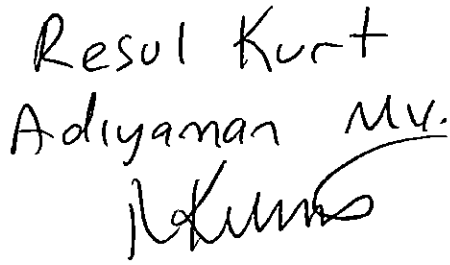 Resul Kurt
Adıyaman Mv.